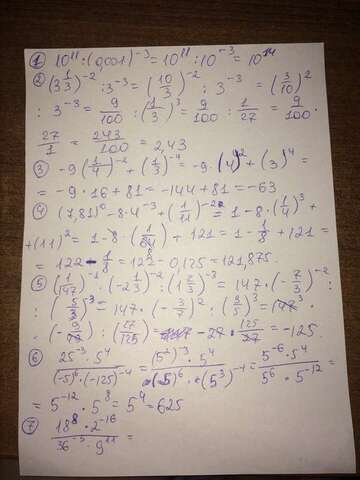 ① 10¹¹ : (0,001)⁻³ = 10¹¹ : 10⁻³ = 10¹⁴
② (3 1/3)⁻² : 3⁻³ = (10/3)⁻² : 3⁻³ = (3/10)²
: 3⁻³ = 9/100 : (1/3)³ = 9/100 : 1/27 = 9/100 ·
27/1 = 243/100 = 2,43
③ -9(1/4)⁻² + (1/3)⁻⁴ = -9 · (4)² + (3)⁴ =
= -9 · 16 + 81 = -144 + 81 = -63
④ (7,81)⁰ - 8 · 4⁻³ + (1/11)⁻² = 1 - 8 · (1/4)³ +
+ (11)² = 1 - 8 · (1/64) + 121 = 1 - 1/8 + 121 =
= 122 - 1/8 = 122 - 0,125 = 121,875.
⑤ (1/147)⁻¹ · (-2 1/3)⁻² : (1 2/3)⁻³ = 147 · (-7/3)⁻² :
: (5/3)⁻³ = 147 · (-3/7)² : (3/5)³ = 147 ·
· (-9/ ) : (27/125) = 27 · 125/27 = -125.
⑥ 25⁻³ · 5⁴ / (-5)⁶ · (-125)⁻⁴ = (5²)⁻³ · 5⁴ / (-5)⁶ · (5³)⁻⁴ = 5⁻⁶ · 5⁴ / 5⁶ · 5⁻¹² =
= 5⁻¹² · 5⁸ = 5⁴ = 625
⑦ 18⁸ · 2⁻¹⁶ / 36⁻⁵ · 9¹¹ =